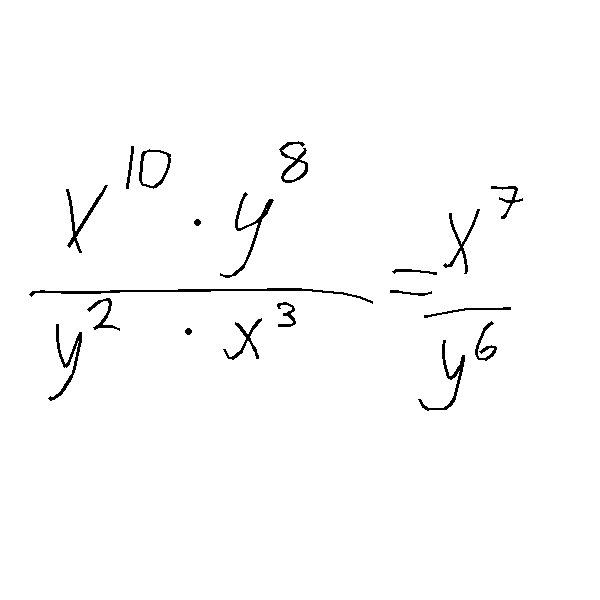 x¹⁰ · y⁸ / y² · x³ = x⁷ / y⁶